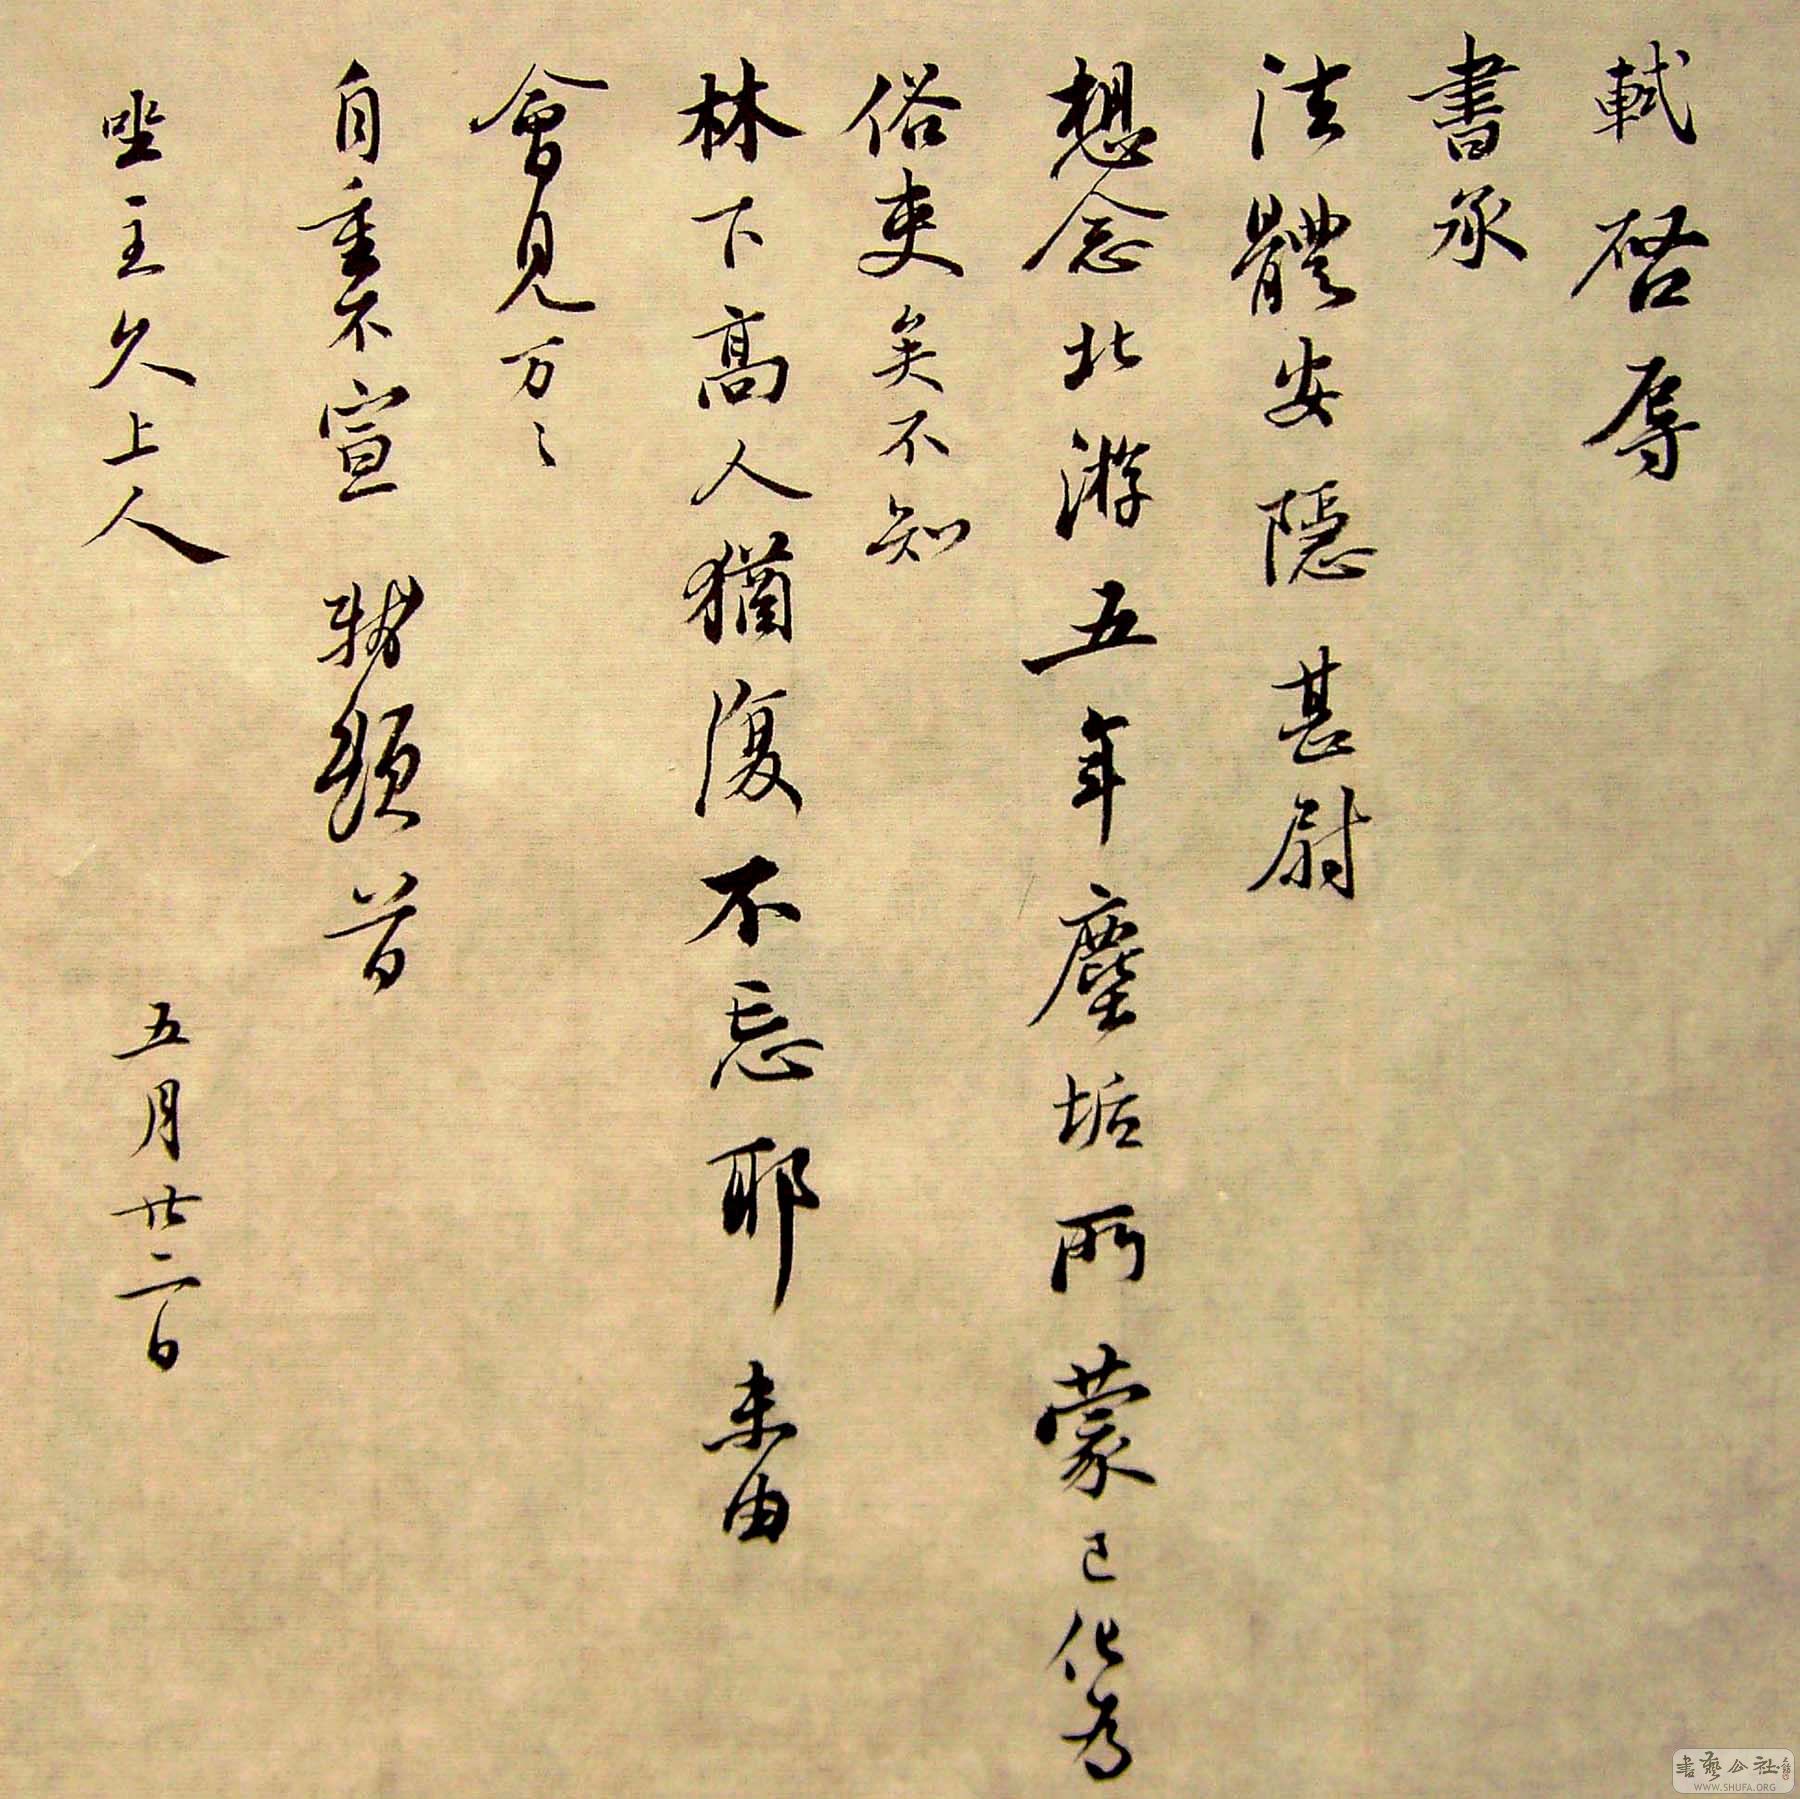 軾啓辱
書承
法體安隱甚尉
想念北游五年塵垢所蒙已化為
俗吏矣不知
林下高人猶復不忘耶未由
會見万〻
自重不宣　軾頓首
坐主久上人　五月廿二日
書藝公社
WWW.SHUFA.ORG